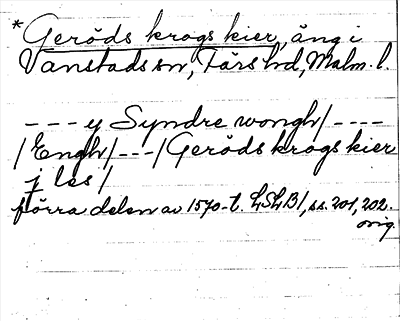 * Geröds krogs kier, äng i
Vanstads sn, Färs hd, Malm. l.
- - - y Syndre wongh/ - - - -
/Engh/ - - - /Geröds krogs kier
j les/
förra delen av 1570-t. LSLB1, ss. 201, 202.
orig.